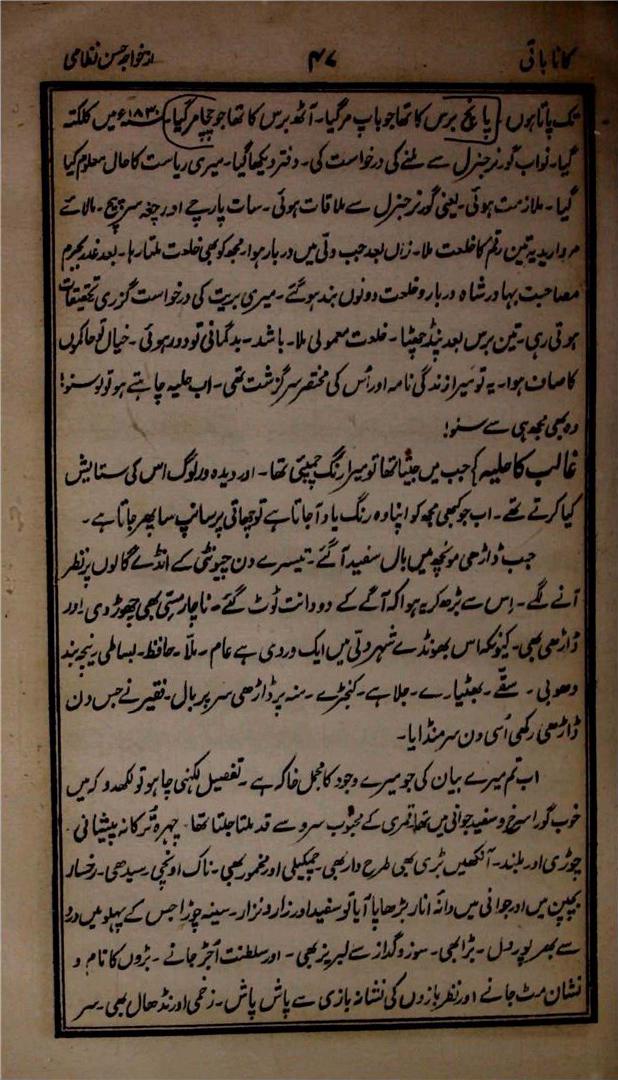 کانا باتی ۴۷ از خواجہ حسن نظامی
تک پاتا ہوں۔ پانچ برس کا تھا جو باپ مر گیا۔ آٹھ برس کا تھا جو چچا مر گیا۔ ۱۸۳۰ء میں کلکتہ
گیا۔ نواب گورنر جنرل سے ملنے کی درخواست کی۔ دفتر دیکھا گیا۔ میری ریاست کا حال معلوم کیا
گیا۔ ملازمت ہوئی۔ یعنی گورنر جنرل سے ملاقات ہوئی۔ سات پارچے اور جیغہ سرپیچ۔ مالائے
مروارید یہ تین رقم کا خلعت ملا۔ زاں بعد جب دلی میں دربار ہوا، مجھ کو بھی خلعت ملتا رہا۔ بعد غدر بجرم
مصاحبت بہادر شاہ دربار و خلعت دونوں بند ہو گئے۔ میری بریت کی درخواست گزری تحقیقات
ہوتی رہی۔ تین برس بعد پنڈ چھٹا۔ خلعت معمولی ملا۔ باشد۔ بدگمانی تو دور ہوئی۔ خیال تو حاکموں
کا صاف ہوا۔ یہ تو میرا زندگی نامہ اور اُس کی مختصر سرگزشت تھی۔ اب حلیہ چاہتے ہو تو لو سنو!
وہ بھی مجھ ہی سے سنو!
غالب کا حلیہ کہ جب میں جیتا تھا تو میرا رنگ چمپئی تھا۔ اور دیدہ ور لوگ اس کی ستایش
کیا کرتے تھے۔ اب جو کبھی مجھ کو اپنا وہ رنگ یاد آ جاتا ہے تو چھاتی پر سانپ سا پھر جاتا ہے۔
جب ڈاڑھی مونچھ میں بال سفید آ گئے۔ تیسرے دن چیونٹی کے انڈے گالوں پر نظر
آنے لگے۔ اس سے بڑھ کر یہ ہوا کہ آگے کے دو دانت ٹوٹ گئے۔ ناچار مسّی بھی چھوڑ دی اور
ڈاڑھی بھی۔ کیونکہ اس بھونڈے شہر دلی میں ایک وردی ہے عام۔ ملّا۔ حافظ۔ بساطی نیچہ بند
دھوبی۔ سقّے۔ بھٹیارے۔ جلاہے۔ کنجڑے۔ منہ پر ڈاڑھی سر پر بال۔ فقیر نے جس دن
ڈاڑھی رکھی اُسی دن سر منڈایا۔
اب تم میرے بیان کی جو میرے وجود کا مجمل خاکہ ہے۔ تفصیل لکھنی چاہو تو لکھدو کہ میں
خوب گورا سرخ و سفید جوانی میں تھا، قمری کے محبوب سرو سے قد ملتا جلتا تھا۔ چہرہ تُرکانہ پیشانی
چوڑی اور بلند۔ آنکھیں بڑی بھی طرح دار بھی۔ چمکیلی اور مخمور بھی۔ ناک اونچی۔ سیدھی۔ رخسار
بچپن میں اور جوانی میں دانۂ انار بڑھاپا آیا تو سفید اور زار و نزار۔ سینہ چوڑا جس کے پہلو میں درد
سے بھرپور دل۔ بڑا بھی۔ سوز و گداز سے لبریز بھی۔ اور سلطنت اُجڑ جانے۔ بڑوں کا نام و
نشان مٹ جانے اور نظر بازوں کی نشانہ بازی سے پاش پاش۔ زخمی اور نڈھال بھی۔ سر